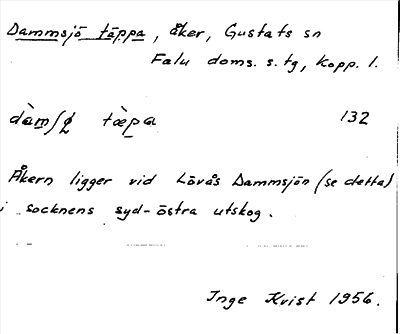 Dammsjö täppa, åker, Gustafs sn
Falu doms. s. tg, Kopp. l.
dàmʃɷ tæ̀pa 132
Åkern ligger vid Lövås Dammsjön (se detta)
i socknens syd-östra utskog.
Inge Kvist 1956.